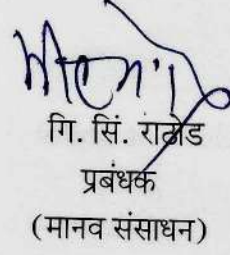 गि. सिं. राठोड
प्रबंधक
(मानव संसाधन)